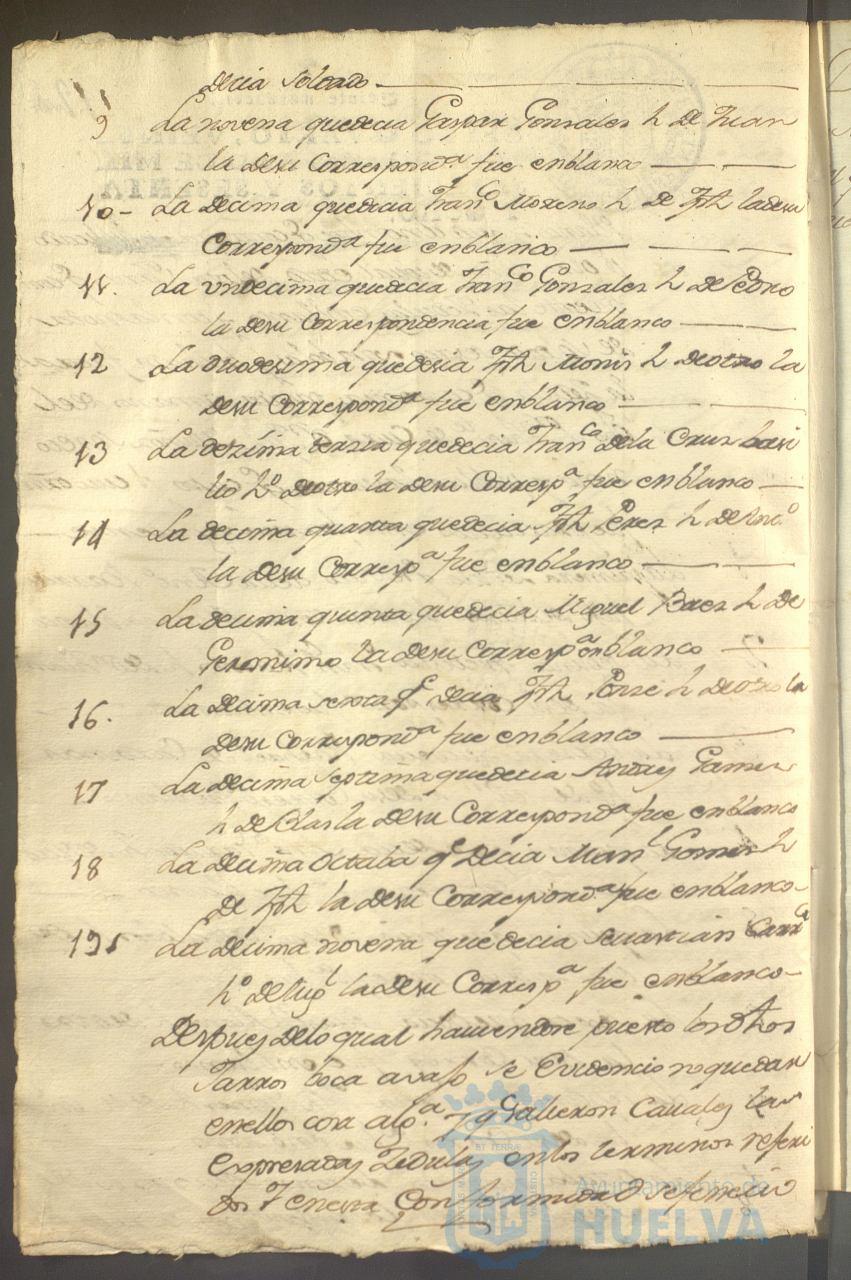 decia soldado
9 La novena quedecia Gaspar Gonsales h de Juan
la desu Correspond.ª fue enblanco
10 - La decima quedecia Fran.co Moreno h de Jph ladesu
Correspond.ª fue enblanco
11. La undecima quedecia Fran.co Gonsales h de Pedro
la desu Correspondencia fue enblanco
12 La duodesima quedesia Jph h deotro la
desu Correspond.ª fue enblanco
13 La dezima tersia quedecia Fran.co dela Cruz
h.º deotro la desu Corresp.ª fue enblanco
14 La decima quarta quedecia Jph Peres h de
la desu Corresp.ª fue enblanco
15 La decima quinta quedecia Miguel Baes h de
Geronimo la desu Corresp.ª enblanco
16. La decima sexta q.e decia Jph h deotro la
desu Correspond.ª fue enblanco
17 La decima septima quedecia Andres
h de Blas la desu Correspond.ª fue enblanco
18 La decima Octaba q.e decia Man.l Gomes h
de Jph la desu Correspond.ª fue enblanco
19 La decima novena quedecia Seuastian
h.º de la desu Corresp.ª fue enblanco
Despues delo qual hauiendose puesto los dhos
Jarros boca avajo se Evidencio noquedar
enellos cosa alg.ª y q.e salieron Cauales las
Expresadas Zedulas enlos terminos referi
dos Y enesta Conformidad
Ayuntamiento de
HUELVA